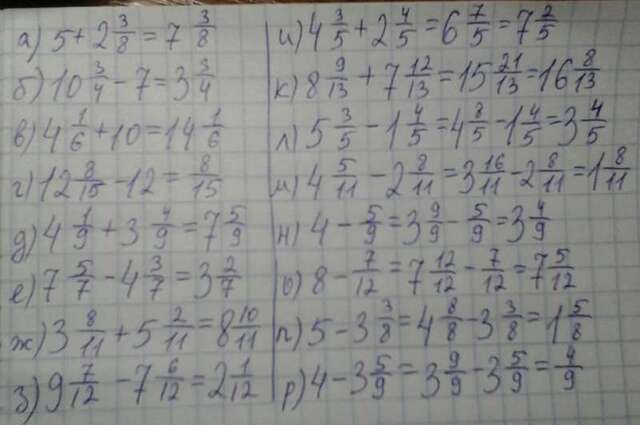 а) 5 + 2 3/8 = 7 3/8
б) 10 3/4 - 7 = 3 3/4
в) 4 1/6 + 10 = 14 1/6
г) 12 8/15 - 12 = 8/15
д) 4 1/9 + 3 4/9 = 7 5/9
е) 7 5/7 - 4 3/7 = 3 2/7
ж) 3 8/11 + 5 2/11 = 8 10/11
з) 9 7/12 - 7 6/12 = 2 1/12
и) 4 3/5 + 2 4/5 = 6 7/5 = 7 2/5
к) 8 9/13 + 7 12/13 = 15 21/13 = 16 8/13
л) 5 3/5 - 1 4/5 = 4 8/5 - 1 4/5 = 3 4/5
м) 4 5/11 - 2 8/11 = 3 16/11 - 2 8/11 = 1 8/11
н) 4 - 5/9 = 3 9/9 - 5/9 = 3 4/9
о) 8 - 7/12 = 7 12/12 - 7/12 = 7 5/12
п) 5 - 3 3/8 = 4 8/8 - 3 3/8 = 1 5/8
р) 4 - 3 5/9 = 3 9/9 - 3 5/9 = 4/9